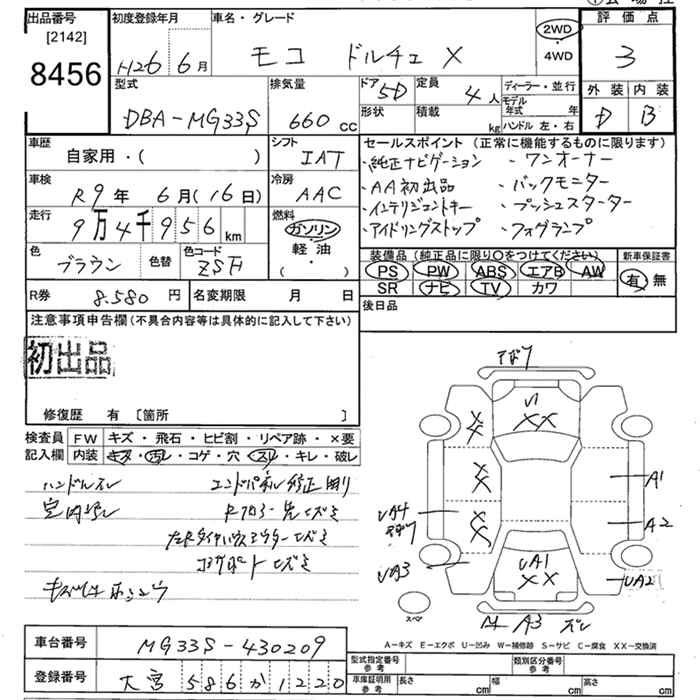 出品番号 [2142] 8456
初度登録年月 H26年6月
車名・グレード モコ ドルチェ X
2WD・4WD
評価点 3
外装 D 内装 B
型式 DBA-MG33S
排気量 660 cc
ドア 5D 定員 4人
形状 積載 kg
ディーラー・並行
モデル年式 年
ハンドル 左・右
車歴 自家用・( )
シフト IAT
車検 R9年6月(16日)
冷房 AAC
走行 9万4千956km
燃料 ガソリン 軽油 ・( )
色 ブラウン 色替 色コード ZSH
R券 8.580円 名変期限 月 日
セールスポイント(正常に機能するものに限ります)
・純正ナビゲーション ・ワンオーナー
・AA初出品 ・バックモニター
・インテリジェントキー ・プッシュスターター
・アイドリングストップ ・フォグランプ
装備品(純正品に限り○をつけてください)
PS PW ABS エアB AW
SR ナビ TV カワ
新車保証書 有 無
後日品
注意事項申告欄(不具合内容等は具体的に記入して下さい)
初出品
修復歴 有 〔箇所 〕
検査員記入欄 FW キズ・飛石・ヒビ割・リペア跡・×要
内装 キズ・汚レ・コゲ・穴・スレ・キレ・破レ
ハンドルスレ エンドパネル修正
キズ
車台番号 MG33S-430209
登録番号 大宮 586 か 1220
U1
XX
XX
XX
XX
UA4
UA3
UA1
XX
A1
A2
UA2
A3 ズレ
スペア
A-キズ E-エクボ U-凹み W-補修跡 S-サビ C-腐食 XX-交換済
型式指定番号 参考 類別区分番号 参考
車庫証明用 参考 長さ cm 幅 cm 高さ cm